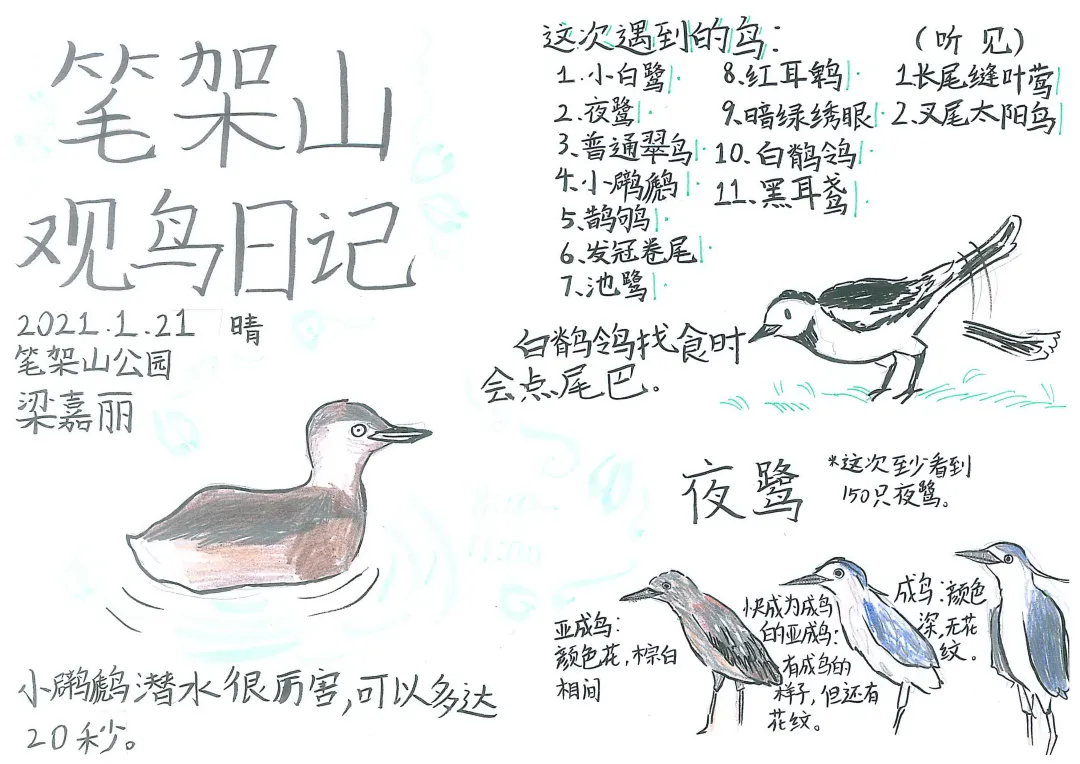 笔架山
观鸟日记
2021.1.21 晴
笔架山公园
梁嘉丽
小䴙䴘潜水很厉害,可以多达
20秒。
这次遇到的鸟:
1.小白鹭
2.夜鹭
3.普通翠鸟
4.小䴙䴘
5.鹊鸲
6.发冠卷尾
7.池鹭
8.红耳鹎
9.暗绿绣眼
10.白鹡鸰
11.黑耳鸢
(听见)
1.长尾缝叶莺
2.叉尾太阳鸟
白鹡鸰找食时
会点尾巴。
夜鹭
*这次至少看到
150只夜鹭。
亚成鸟:
颜色花,棕白
相间
快成为成鸟
的亚成鸟:
有成鸟的
样子,但还有
花纹。
成鸟:颜色
深,无花
纹。